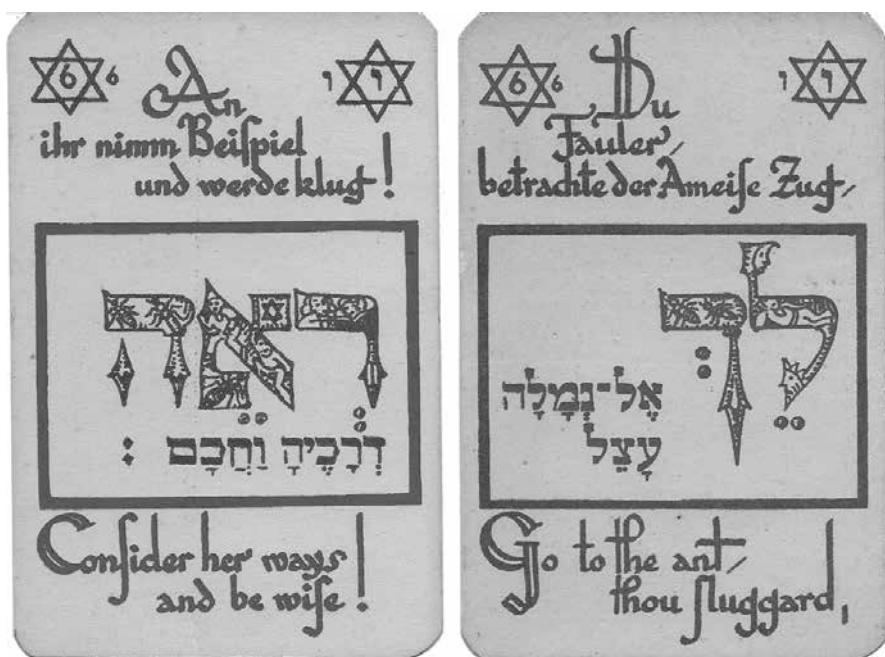 6 6
ו ו
An
ihr nimm Beiſpiel
und werde klug!
רְאֵה
דְרָכֶיהָ וַחֲכָם׃
Conſider her ways
and be wiſe!
6 6
ו ו
Du
Fauler/
betrachte der Ameiſe Zug/
לֵךְ
אֶל־נְמָלָה
עָצֵל
Go to the ant/
thou ſluggard,